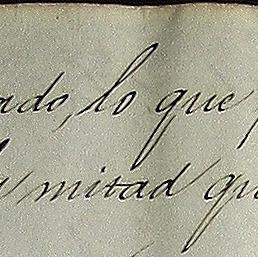 ado, lo que
mitad qu